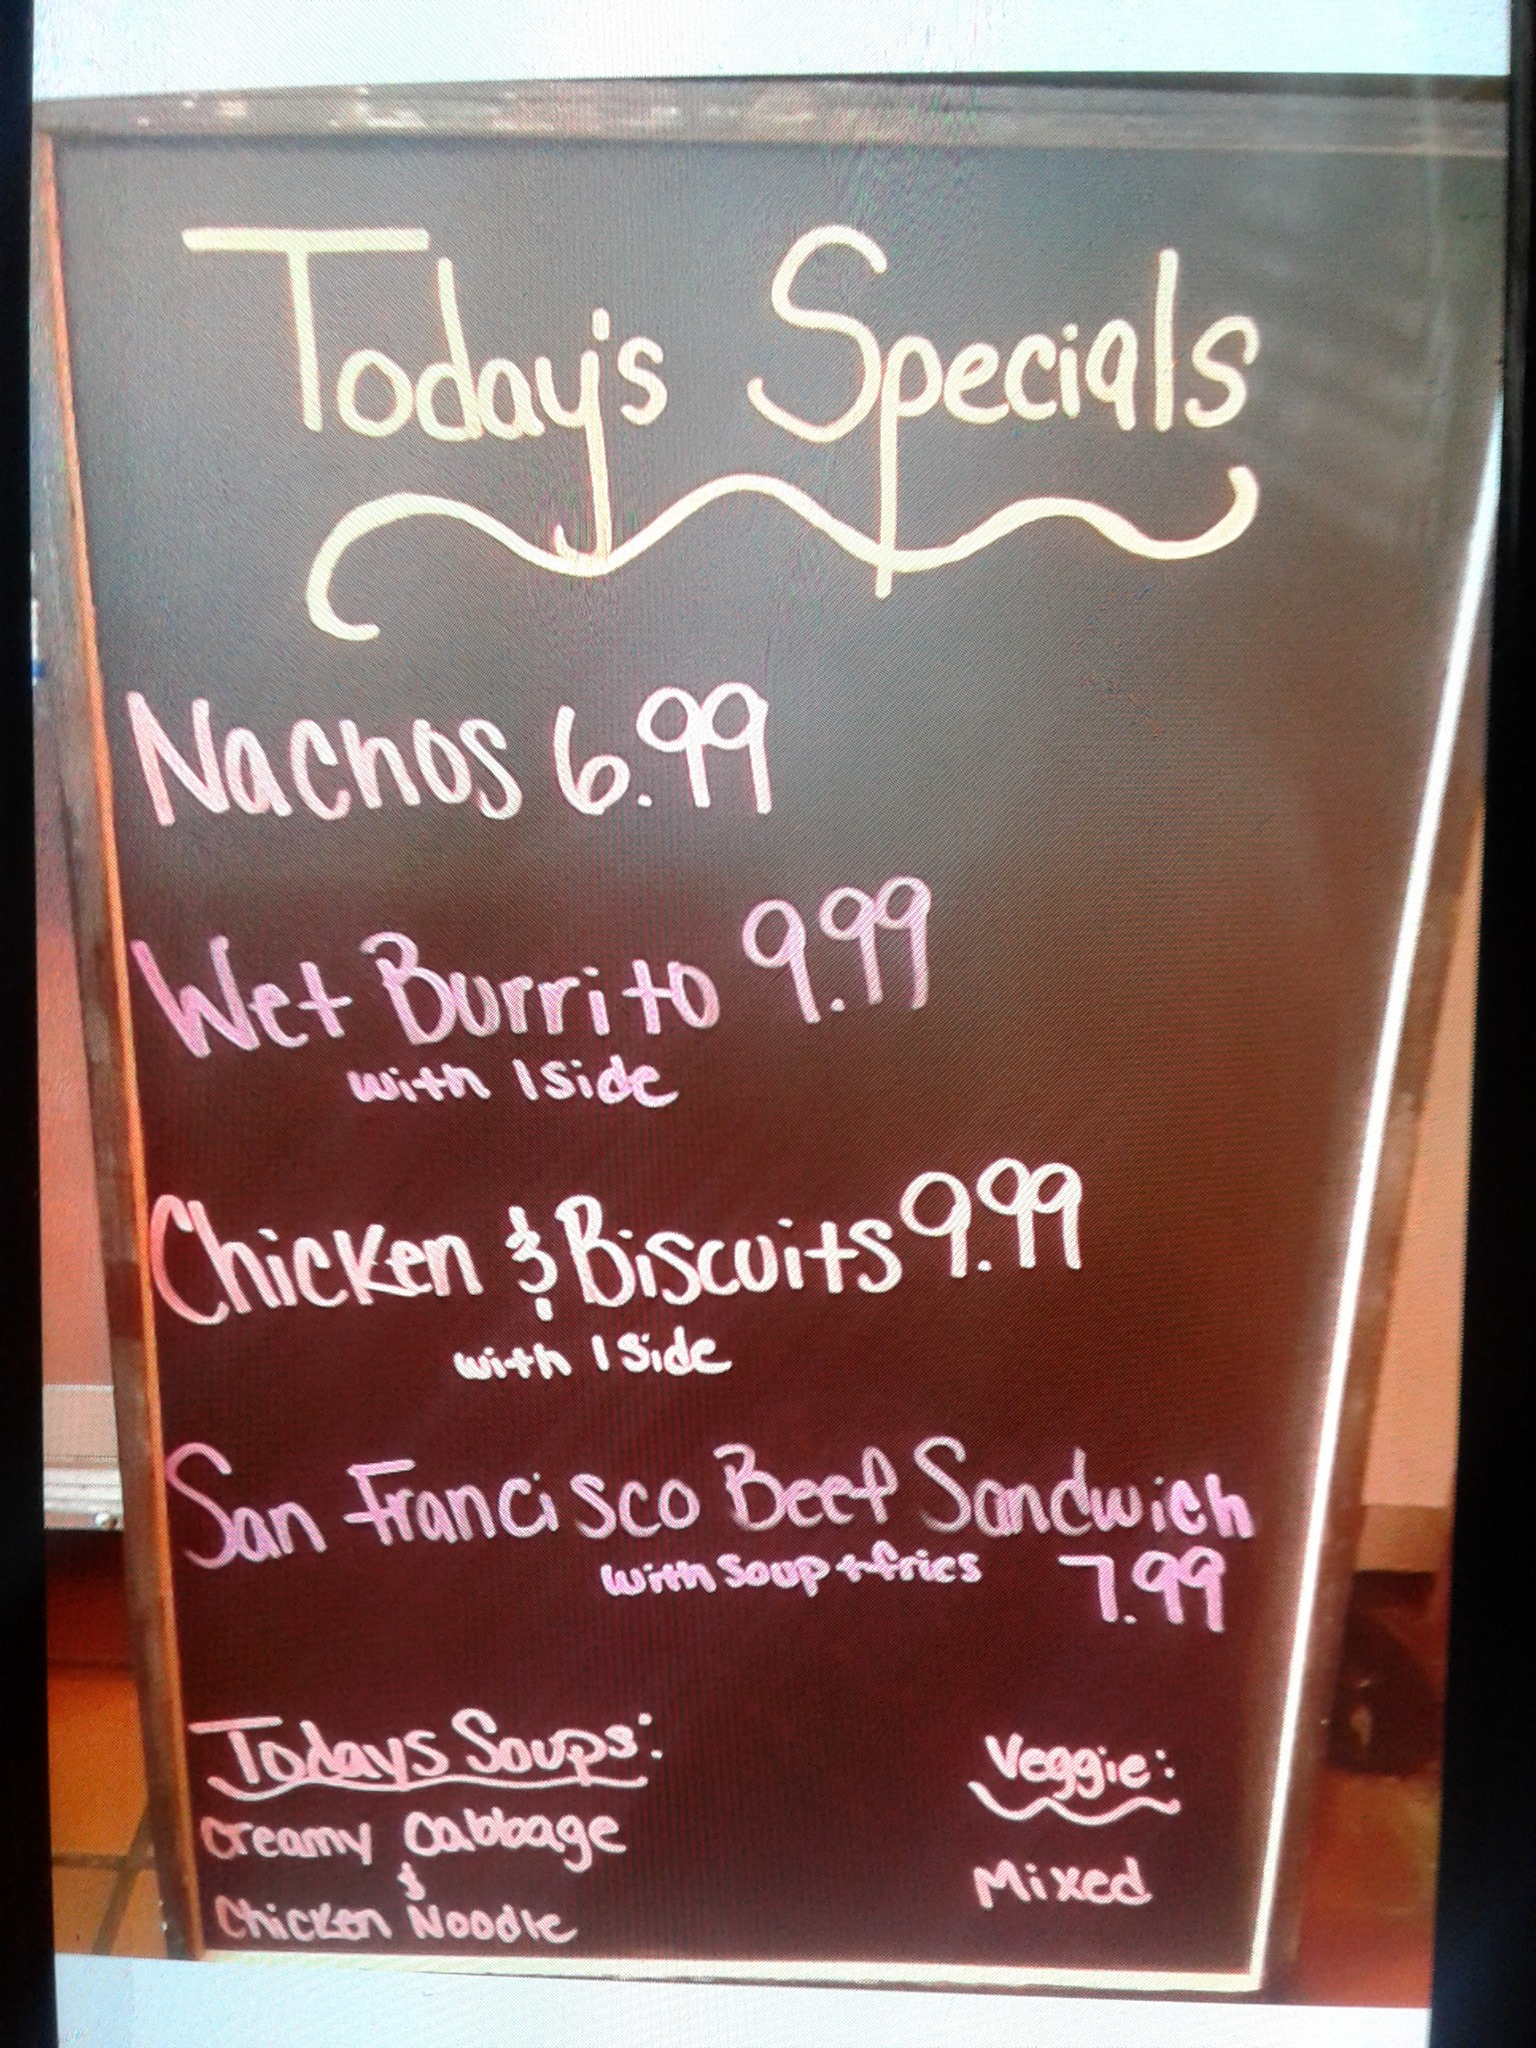 Today's Specials
Nachos 6.99
Wet Burrito 9.99
with 1 side
Chicken & Biscuits 9.99
with 1 side
San Francisco Beef Sandwich
with soup + fries 7.99
Todays Soups:
Creamy Cabbage
&
Chicken Noodle
Veggie:
Mixed